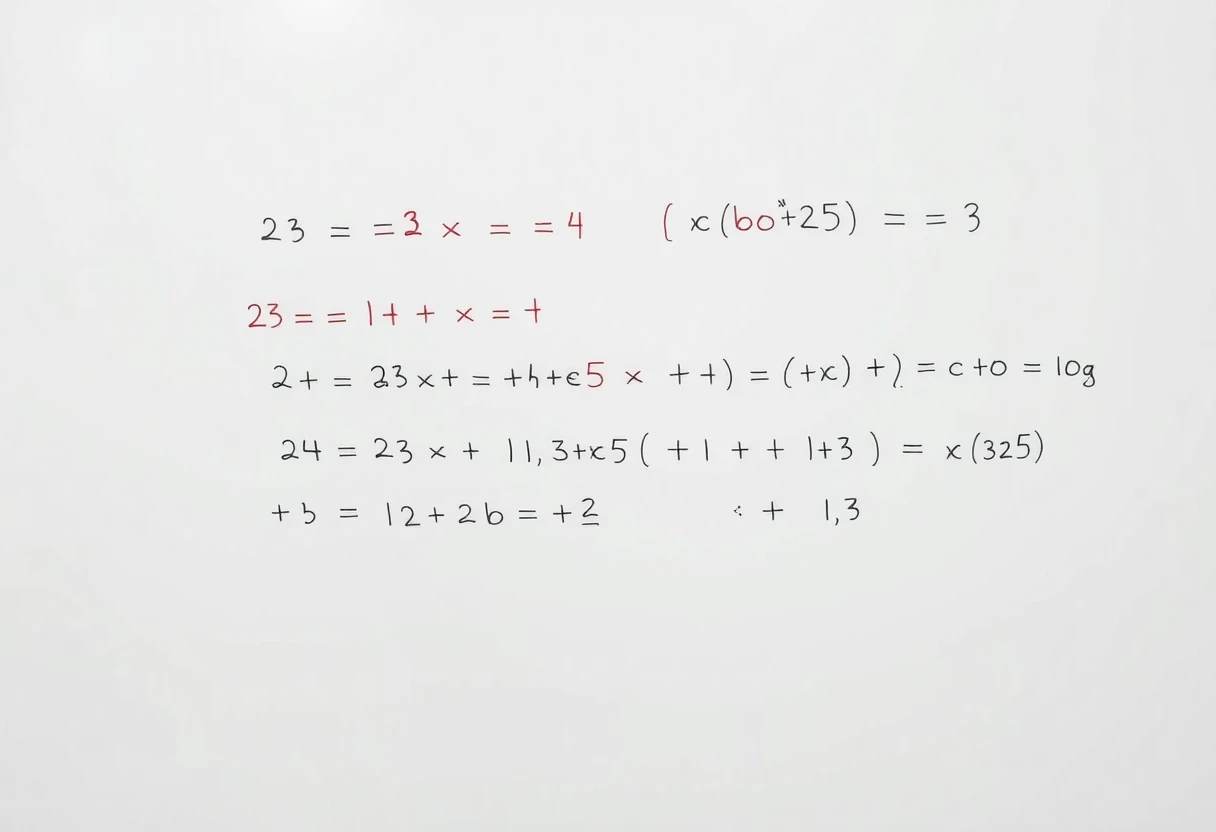 23 = =3 x = =4 ( x (bo"+25) = = 3
23 = = 1+ + x = +
2+ = 23x+ = +h+e5 x ++) = (+x) +) = c+o = log
24 = 23 x + 11,3+x5 ( +1 + + 1+3 ) = x (325)
+b = 12+2b = +2 + 1,3